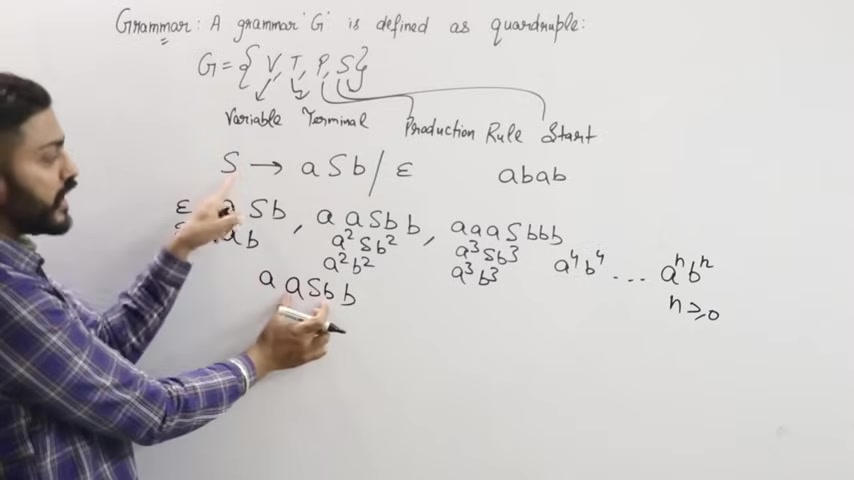 Grammar: A grammar 'G' is defined as quadruple:
G = { V, T, P, S }
Variable Terminal Production Rule Start
S → a S b / ε
abab
ε a Sb , a aSb b , aaaSbbb
ab a²Sb² a³Sb³ a⁴b⁴ ... aⁿbⁿ
a²b² a³b³ n≥0
a aSb b